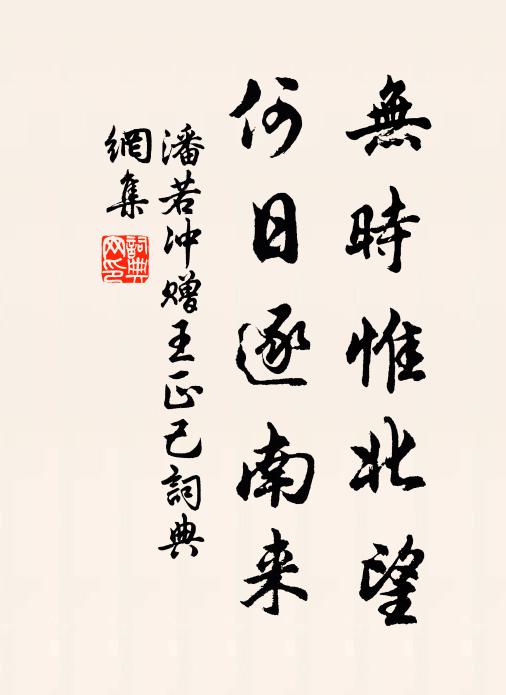 無時惟北望
何日逐南来
潘若冲赠王正己詞典
網集
詞典
网印